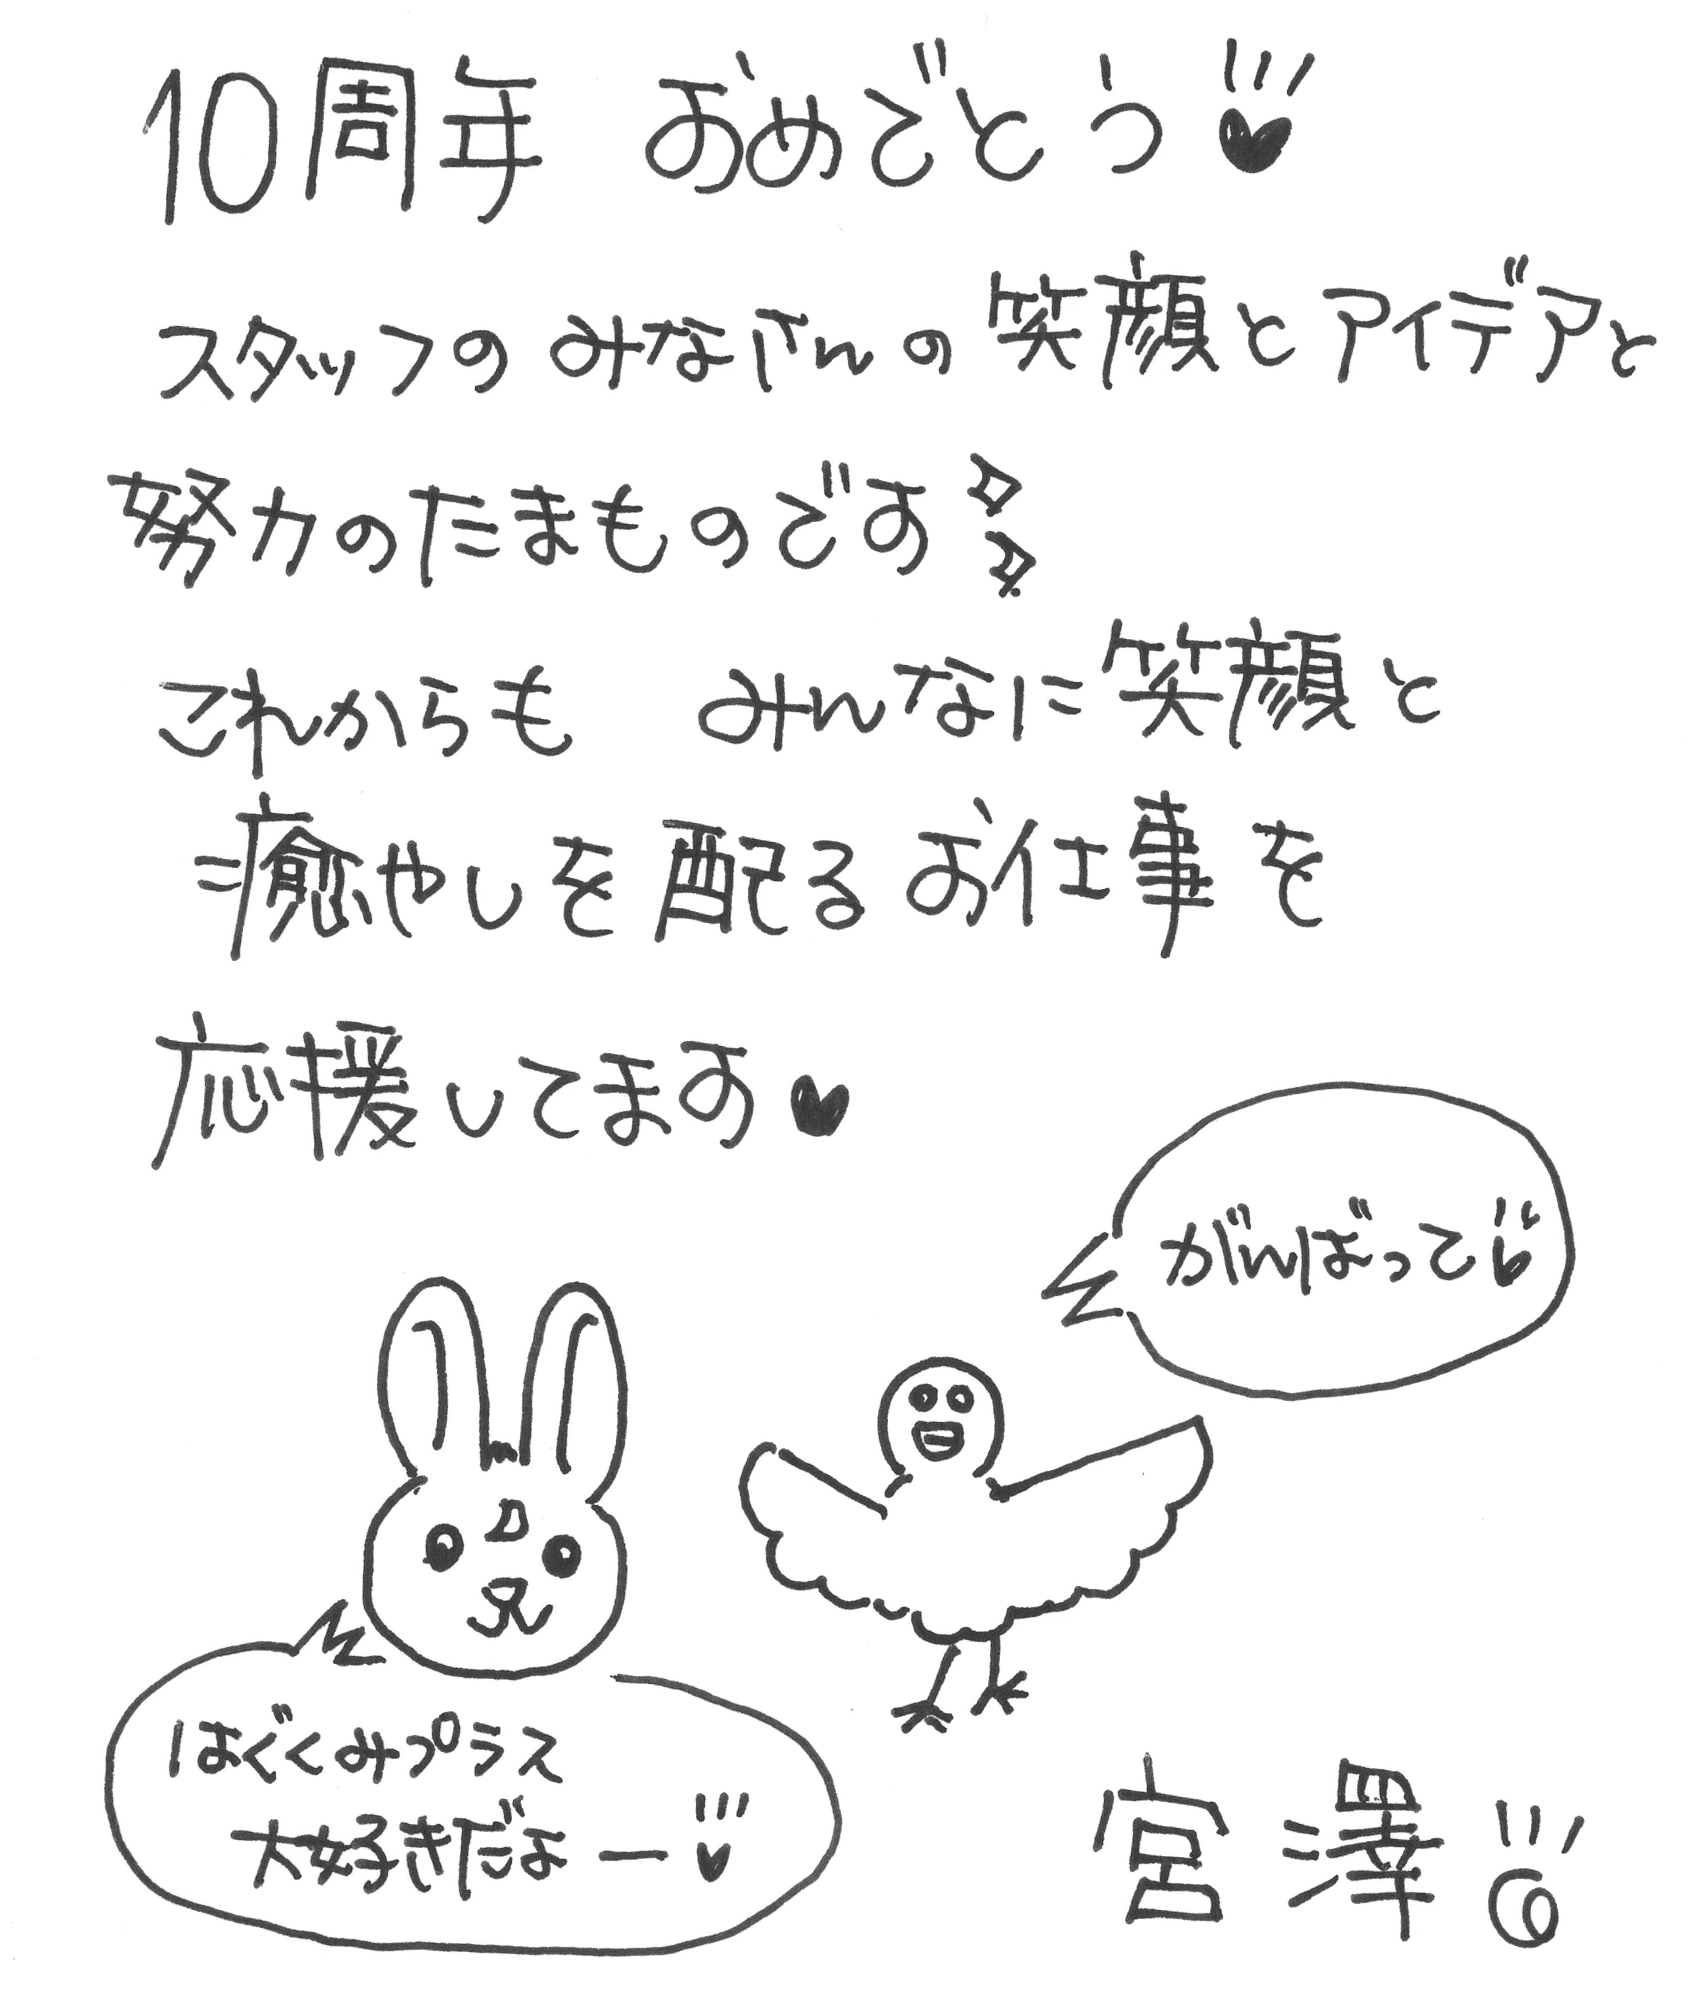 10周年 おめでとう♥
スタッフのみなさんの笑顔とアイデアと
努力のたまものです
これからも みんなに笑顔と
癒やしを配るお仕事を
応援してます♥
がんばって♥
はぐくみプラス
大好きだよー♥
宮澤